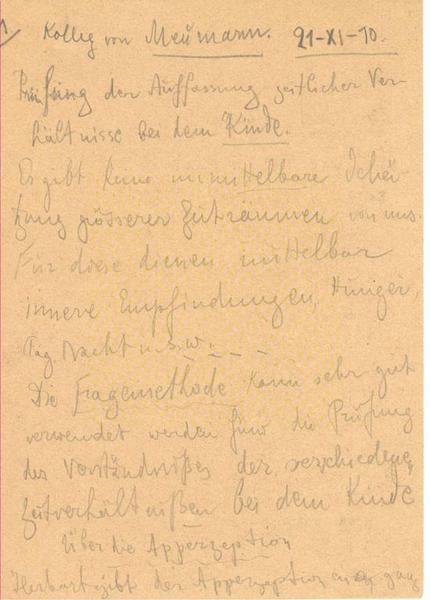 Kolleg von Meumann. 21-XI-10.
Prüfung der Auffassung zeitlicher Ver-
hältnisse bei dem Kinde.
Es gibt keine unmittelbare Schä-
tzung grösserer Zeiträumen von uns.
Für diese dienen mittelbar
innere Empfindungen, Hunger,
Tag Nacht u.s.w. _ _ _
Die Fragemethode kann sehr gut
verwendet werden für die Prüfung
des Verständnißes der verschiedene
Zeitverhältnißen bei dem Kinde
Über die Apperzeption
Herbart gibt der Apperzeption ganz